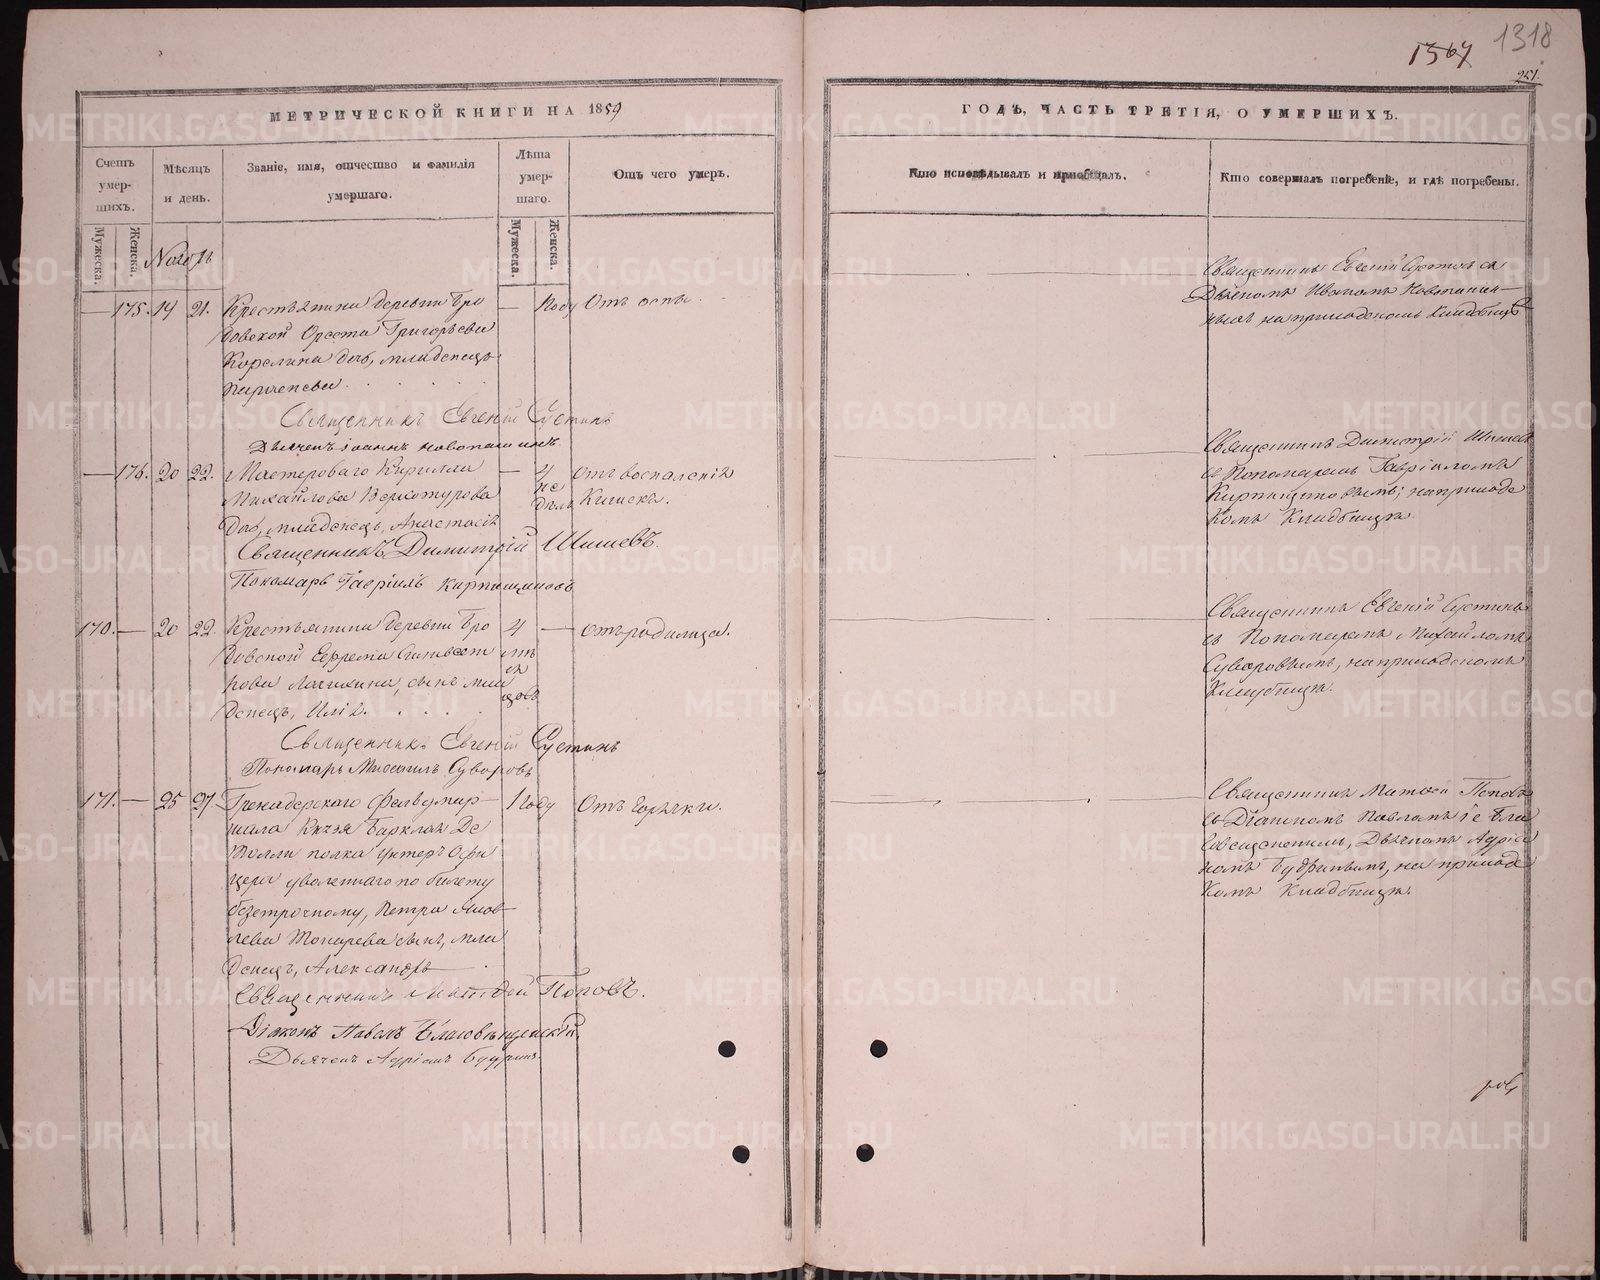 1318
1367
251.
МЕТРИЧЕСКОЙ КНИГИ НА 1859
ГОДЪ, ЧАСТЬ ТРЕТІЯ, О УМЕРШИХЪ.
Счетъ умер-шихъ.
Мужеска.
Женска.
Мѣсяцъ и день.
Званіе, имя, отчество и фамилія умершаго.
Лѣта умер-шаго.
Мужеска.
Женска.
Отъ чего умеръ.
Кто исповѣдывалъ и пріобщалъ.
Кто совершалъ погребеніе, и гдѣ погребены.
Ноябрь
— 175. 19 21. Крестьянина деревни Бро
— 1 году Отъ оспы.
довской Ореста Григорьева
Корелина дочь, младенецъ
Священникъ Евгеній Сустинъ
Дьячекъ Іоаннъ Новопашинъ
Священникъ Евгеній Сустинъ съ
Дьячкомъ Иваномъ Новопашин-
нымъ на приходскомъ кладбищѣ
— 176. 20 22. Мастероваго Кирилла
— 4 не дѣль Отъ воспаленія
Михайлова Верхотурова
Кишекъ.
дочь, младенецъ, Анастасія
Священникъ Димитрій Шишевъ.
Пономарь Гавріилъ Кирпищиковъ
Священникъ Димитрій Шишевъ
съ Пономаремъ Гавріиломъ
Кирпищиковымъ; на приходс
комъ Кладбищѣ.
170. — 20 22. Крестьянина деревни Бро
4 мѣсяцовъ — отъ родимца.
довской Ефрема Сильвест
рова Логинова, сынъ мла
денецъ, Илія.
Священникъ Евгеній Сустинъ
Пономарь Михаилъ Суворовъ
Священникъ Евгеній Сустинъ
съ Пономаремъ Михаиломъ
Суворовымъ, на приходскомъ
Кладбищѣ.
171. — 25 27. Гренадерскаго Фельдмар-
1 году Отъ Горячки.
шала Князя Барклая Де
Толли полка унтеръ офи
цера уволеннаго по билету
безсрочному, Петра Яков-
лева Токарева сынъ, мла
денецъ, Александръ
Священникъ Матѳей Поповъ.
Діаконъ Павелъ Благовѣщенскій
Дьячекъ Адріанъ Будринъ
Священникъ Матѳей Поповъ
съ Діакономъ Павломъ Бла
говѣщенскимъ, Дьячкомъ Адріа
номъ Будринымъ, на приходс
комъ Кладбищѣ.
METRIKI.GASO-URAL.RU